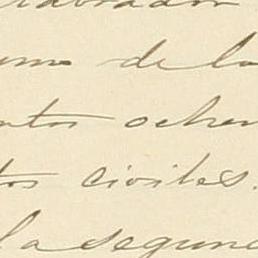 labrador
uno de la
ntos ochen
tos civiles.
la segund